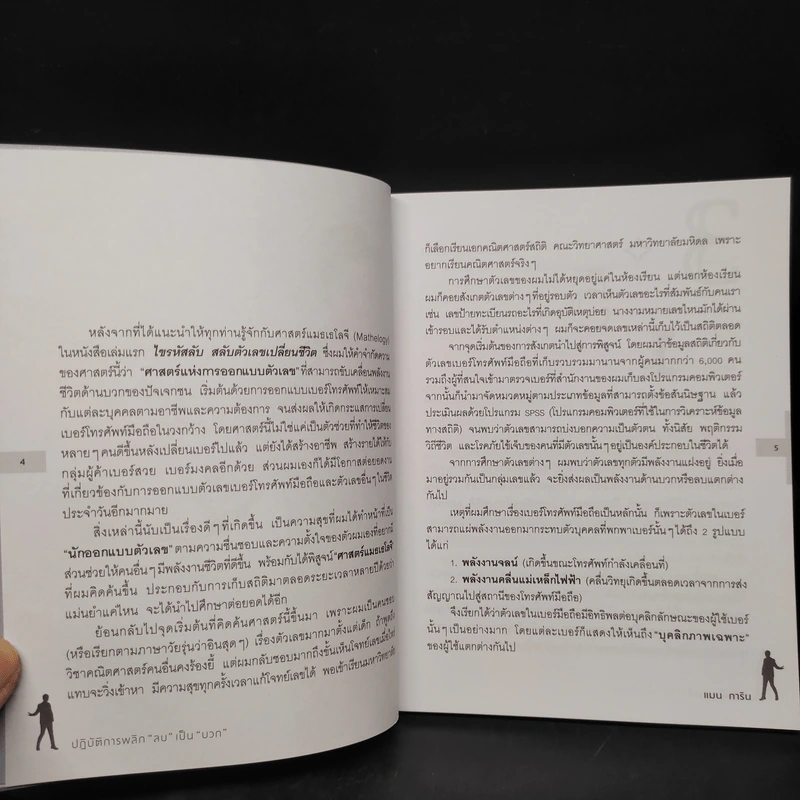 หลังจากที่ได้แนะนำให้ทุกท่านรู้จักกับศาสตร์แมธเธโลจี (Mathelogy)
ในหนังสือเล่มแรก ไขรหัสลับ สลับตัวเลขเปลี่ยนชีวิต ซึ่งผมให้คำจำกัดความ
ของศาสตร์นี้ว่า "ศาสตร์แห่งการออกแบบตัวเลข"ที่สามารถขับเคลื่อนพลังงาน
ชีวิตด้านบวกของปัจเจกชน เริ่มต้นด้วยการออกแบบเบอร์โทรศัพท์ให้เหมาะสม
กับแต่ละบุคคลตามอาชีพและความต้องการ จนส่งผลให้เกิดกระแสการเปลี่ยน
เบอร์โทรศัพท์มือถือในวงกว้าง โดยศาสตร์นี้ไม่ใช่แค่เป็นตัวช่วยที่ทำให้ชีวิตของ
หลายๆ คนดีขึ้นหลังเปลี่ยนเบอร์ไปแล้ว แต่ยังได้สร้างอาชีพ สร้างรายได้ให้กับ
กลุ่มผู้ค้าเบอร์สวย เบอร์มงคลอีกด้วย ส่วนผมเองก็ได้มีโอกาสต่อยอดงาน
ที่เกี่ยวข้องกับการออกแบบตัวเลขเบอร์โทรศัพท์มือถือและตัวเลขอื่นๆ ในชีวิต
ประจำวันอีกมากมาย
สิ่งเหล่านี้นับเป็นเรื่องดีๆ ที่เกิดขึ้น เป็นความสุขที่ผมได้ทำหน้าที่เป็น
"นักออกแบบตัวเลข" ตามความชื่นชอบและความตั้งใจของตัวผมเองที่อยากมี
ส่วนช่วยให้คนอื่นๆ มีพลังงานชีวิตที่ดีขึ้น พร้อมกับได้พิสูจน์"ศาสตร์แมธเธโลจี"
ที่ผมคิดค้นขึ้น ประกอบกับการเก็บสถิติมาตลอดระยะเวลาหลายปีด้วยว่า
แม่นยำแค่ไหน จะได้นำไปศึกษาต่อยอดได้อีก
ย้อนกลับไปจุดเริ่มต้นที่คิดค้นศาสตร์นี้ขึ้นมา เพราะผมเป็นคนชอบ
(หรือเรียกตามภาษาวัยรุ่นว่าอินสุดๆ) เรื่องตัวเลขมากมาตั้งแต่เด็ก ถ้าพูดถึง
วิชาคณิตศาสตร์คนอื่นคงร้องยี้ แต่ผมกลับชอบมากถึงขั้นเห็นโจทย์เลขเมื่อไหร่
แทบจะวิ่งเข้าหา มีความสุขทุกครั้งเวลาแก้โจทย์เลขได้ พอเข้าเรียนมหาวิทยาลัย
4
ปฏิบัติการพลิก "ลบ" เป็น "บวก"
ก็เลือกเรียนเอกคณิตศาสตร์สถิติ คณะวิทยาศาสตร์ มหาวิทยาลัยมหิดล เพราะ
อยากเรียนคณิตศาสตร์จริงๆ
การศึกษาตัวเลขของผมไม่ได้หยุดอยู่แค่ในห้องเรียน แต่นอกห้องเรียน
ผมก็คอยสังเกตตัวเลขต่างๆ ที่อยู่รอบตัว เวลาเห็นตัวเลขอะไรที่สัมพันธ์กับคนเรา
เช่น เลขป้ายทะเบียนรถอะไรที่เกิดอุบัติเหตุบ่อย นางงามหมายเลขไหนมักได้ผ่าน
เข้ารอบและได้รับตำแหน่งต่างๆ ผมก็จะคอยจดเลขเหล่านี้เก็บไว้เป็นสถิติตลอด
จากจุดเริ่มต้นของการสังเกตนำไปสู่การพิสูจน์ โดยผมนำข้อมูลสถิติเกี่ยวกับ
ตัวเลขเบอร์โทรศัพท์มือถือที่เก็บรวบรวมมานานจากผู้คนมากกว่า 6,000 คน
รวมถึงผู้ที่สนใจเข้ามาตรวจเบอร์ที่สำนักงานของผมเก็บลงโปรแกรมคอมพิวเตอร์
จากนั้นก็นำมาจัดหมวดหมู่ตามประเภทข้อมูลที่สามารถตั้งข้อสันนิษฐาน แล้ว
ประเมินผลด้วยโปรแกรม SPSS (โปรแกรมคอมพิวเตอร์ที่ใช้ในการวิเคราะห์ข้อมูล
ทางสถิติ) จนพบว่าตัวเลขสามารถบ่งบอกความเป็นตัวตน ทั้งนิสัย พฤติกรรม
วิถีชีวิต และโรคภัยไข้เจ็บของคนที่มีตัวเลขนั้นๆ อยู่เป็นองค์ประกอบในชีวิตได้
จากการศึกษาตัวเลขต่างๆ ผมพบว่าตัวเลขทุกตัวมีพลังงานแฝงอยู่ ยิ่งเมื่อ
มาอยู่รวมกันเป็นกลุ่มเลขแล้ว จะยิ่งส่งผลเป็นพลังงานด้านบวกหรือลบแตกต่าง
กันไป
เหตุที่ผมศึกษาเรื่องเบอร์โทรศัพท์มือถือเป็นหลักนั้น ก็เพราะตัวเลขในเบอร์
สามารถแผ่พลังงานออกมากระทบตัวบุคคลที่พกพาเบอร์นั้นๆ ได้ถึง 2 รูปแบบ
ได้แก่
1. พลังงานจลน์ (เกิดขึ้นขณะโทรศัพท์กำลังเคลื่อนที่)
2. พลังงานคลื่นแม่เหล็กไฟฟ้า (คลื่นวิทยุเกิดขึ้นตลอดเวลาจากการส่ง
สัญญาณไปสู่สถานีของโทรศัพท์มือถือ)
จึงเรียกได้ว่าตัวเลขในเบอร์มือถือมีอิทธิพลต่อบุคลิกลักษณะของผู้ใช้เบอร์
นั้นๆ เป็นอย่างมาก โดยแต่ละเบอร์ก็แสดงให้เห็นถึง "บุคลิกภาพเฉพาะ"
ของผู้ใช้แตกต่างกันไป
5
แมน การิน